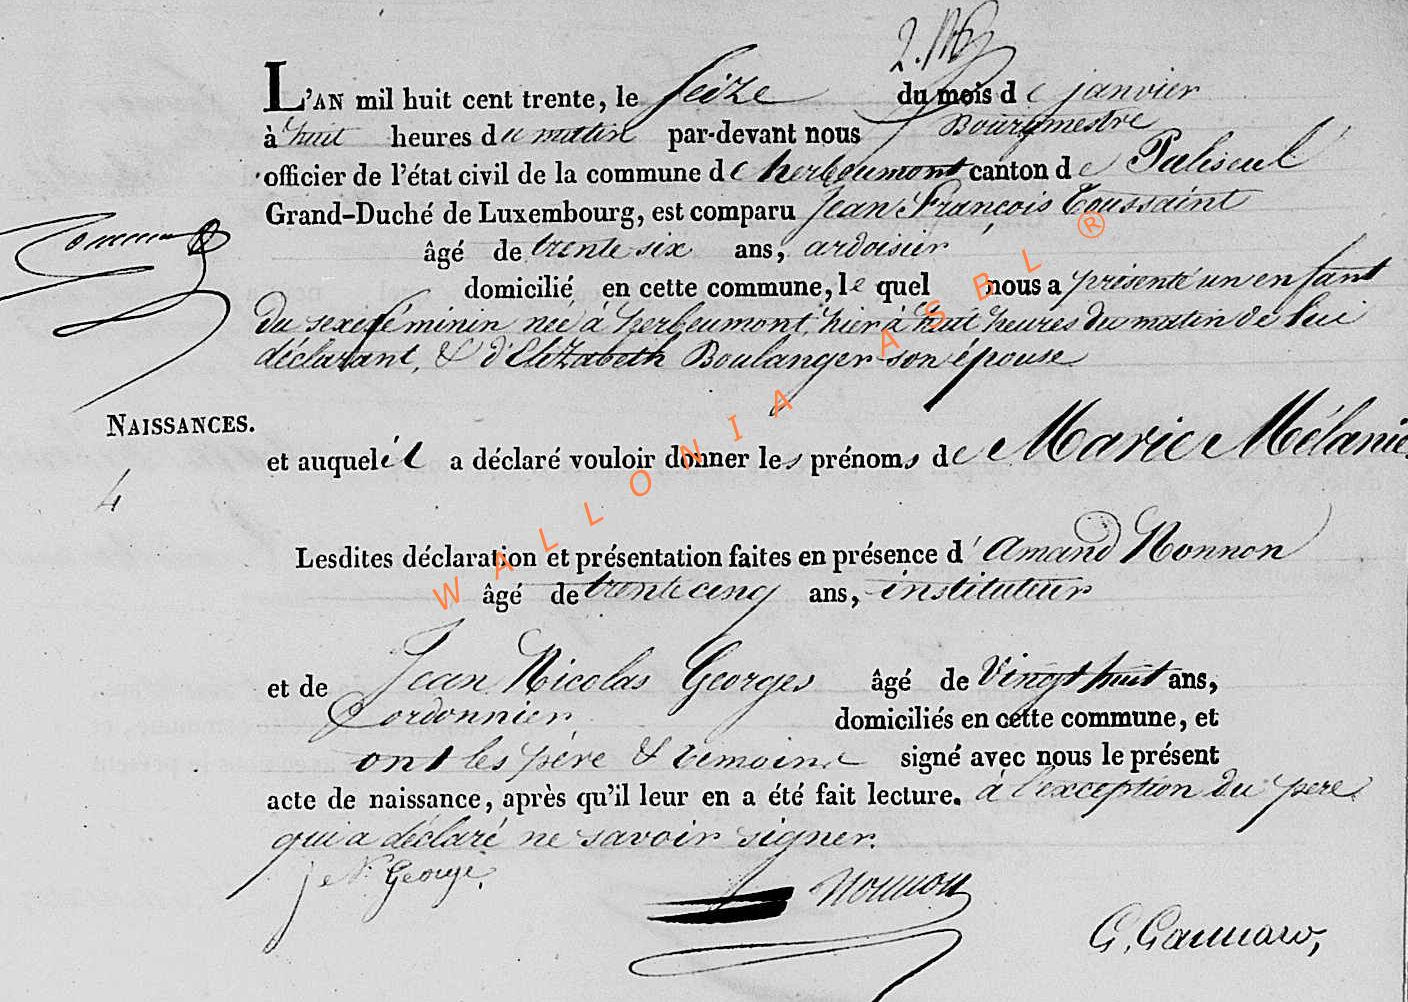 L'AN mil huit cent trente, le seize du mois de janvier
à huit heures du matin par-devant nous Bourgmestre
officier de l'état civil de la commune de herbeumont canton de Paliseul
Grand-Duché de Luxembourg, est comparu Jean François Toussaint
âgé de trente six ans, ardoisier
domicilié en cette commune, le quel nous a présenté un enfant
du sexe féminin née à herbeumont, hier à huit heures du matin de lui
déclarant, & d'Elizabeth Boulanger son épouse
NAISSANCES.
4
et auquel il a déclaré vouloir donner les prénoms de Marie Mélanie,
Lesdites déclaration et présentation faites en présence d'Amand Nonnon
âgé de trente cinq ans, instituteur
et de Jean Nicolas Georges âgé de Vingt huit ans,
Cordonnier domiciliés en cette commune, et
ont les père & témoins signé avec nous le présent
acte de naissance, après qu'il leur en a été fait lecture. à l'exception du père
qui a déclaré ne savoir signer.
j e N. George. Nonnon
WALLONIA ASBL ®